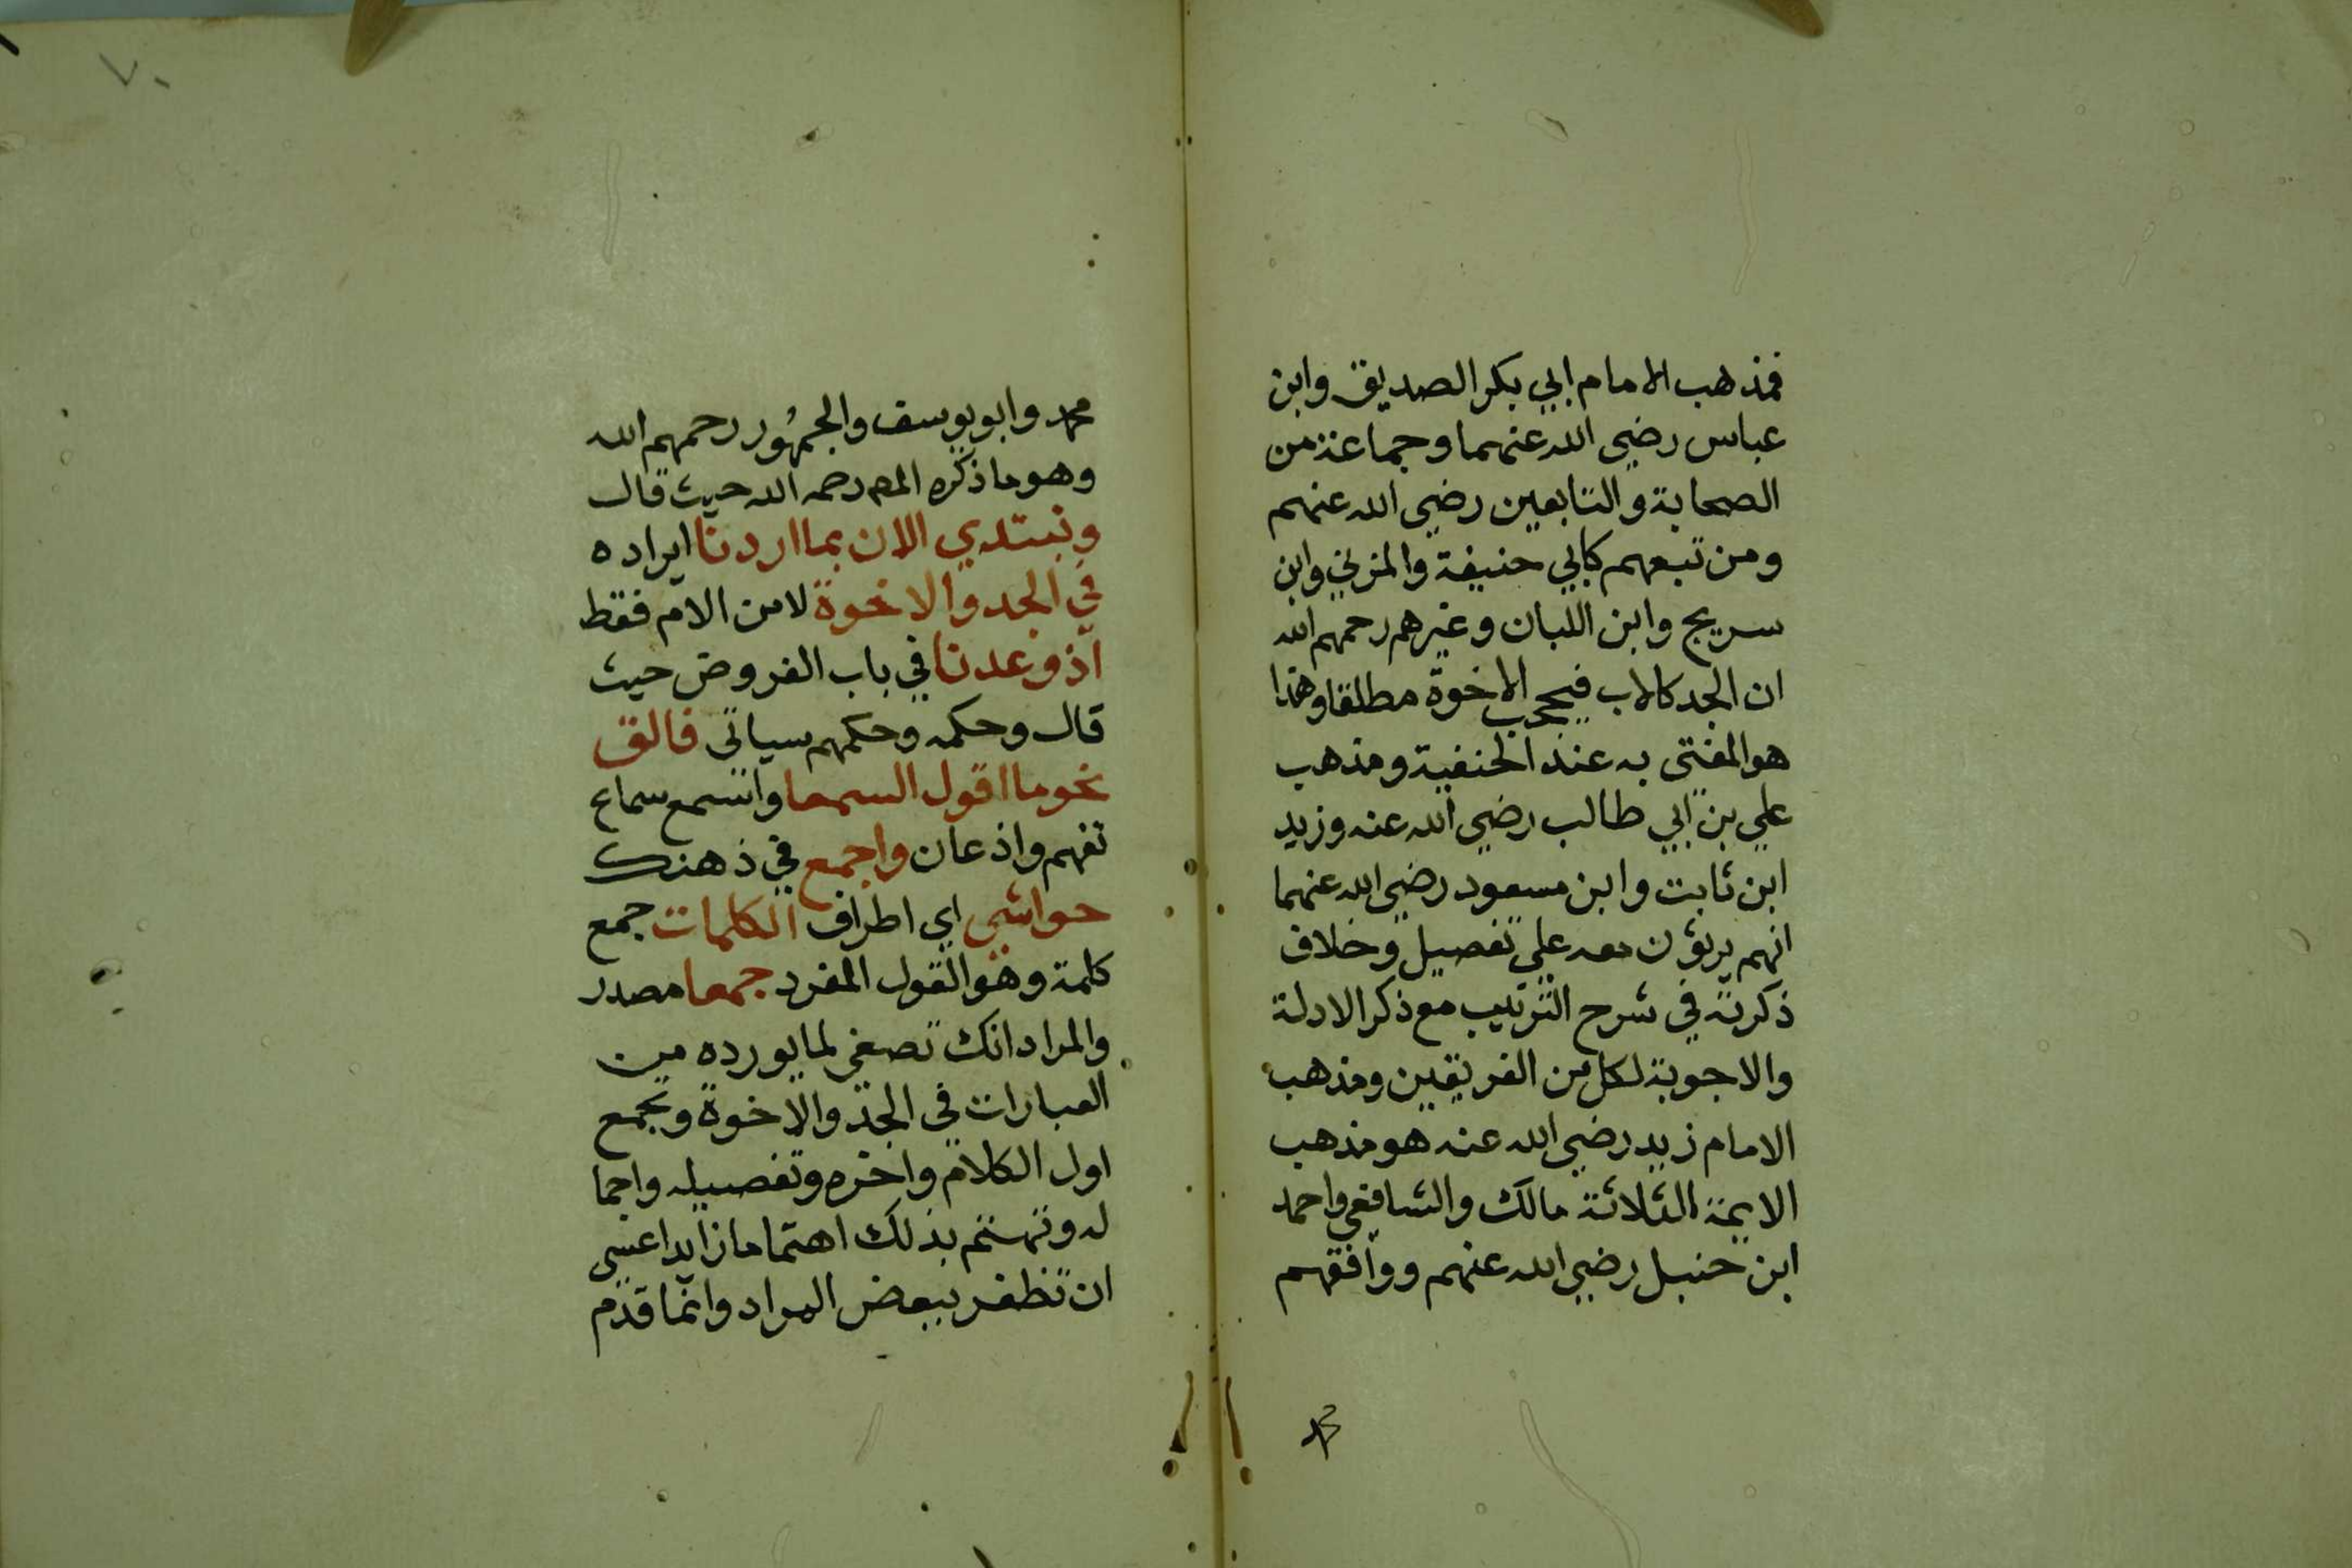 فمذهب الامام ابي بكر الصديق وابن
عباس رضي الله عنهما وجماعة من
الصحابة والتابعين رضي الله عنهم
ومن تبعهم كابي حنيفة والمزني وابن
سريج وابن اللبان وغيرهم رحمهم الله
ان الجد كالاب فيحجب الاخوة مطلقا وهذا
هو المفتى به عند الحنفية ومذهب
علي بن ابي طالب رضي الله عنه وزيد
ابن ثابت وابن مسعود رضي الله عنهما
انهم يرثون معه على تفصيل وخلاف
ذكرته في شرح الترتيب مع ذكر الادلة
والاجوبة لكل من الفريقين ومذهب
الامام زيد رضي الله عنه هو مذهب
الايمة الثلاثة مالك والشافعي واحمد
ابن حنبل رضي الله عنهم ووافقهم
محمد
٧٠
محمد وابو يوسف والجمهور رحمهم الله
وهو ما ذكره المص رحمه الله حيث قال
ونبتدي الان بما اردنا ايراده
في الجد والاخوة لا من الام فقط
اذ وعدنا في باب الفروض حيث
قال وحكمه وحكمهم سياتي فالق
نحو ما اقول السمعا واسمع سماع
تفهم واذعان واجمع في ذهنك
حواشي اي اطراف الكلمات جمع
كلمة وهو القول المفرد جمعا مصدر
والمراد انك تصغي لما يورده من
العبارات في الجد والاخوة وتجمع
اول الكلام واخره وتفصيله واجما
له وتهتم بذلك اهتماما زايدا عسى
ان تظفر ببعض المراد وانما قدم